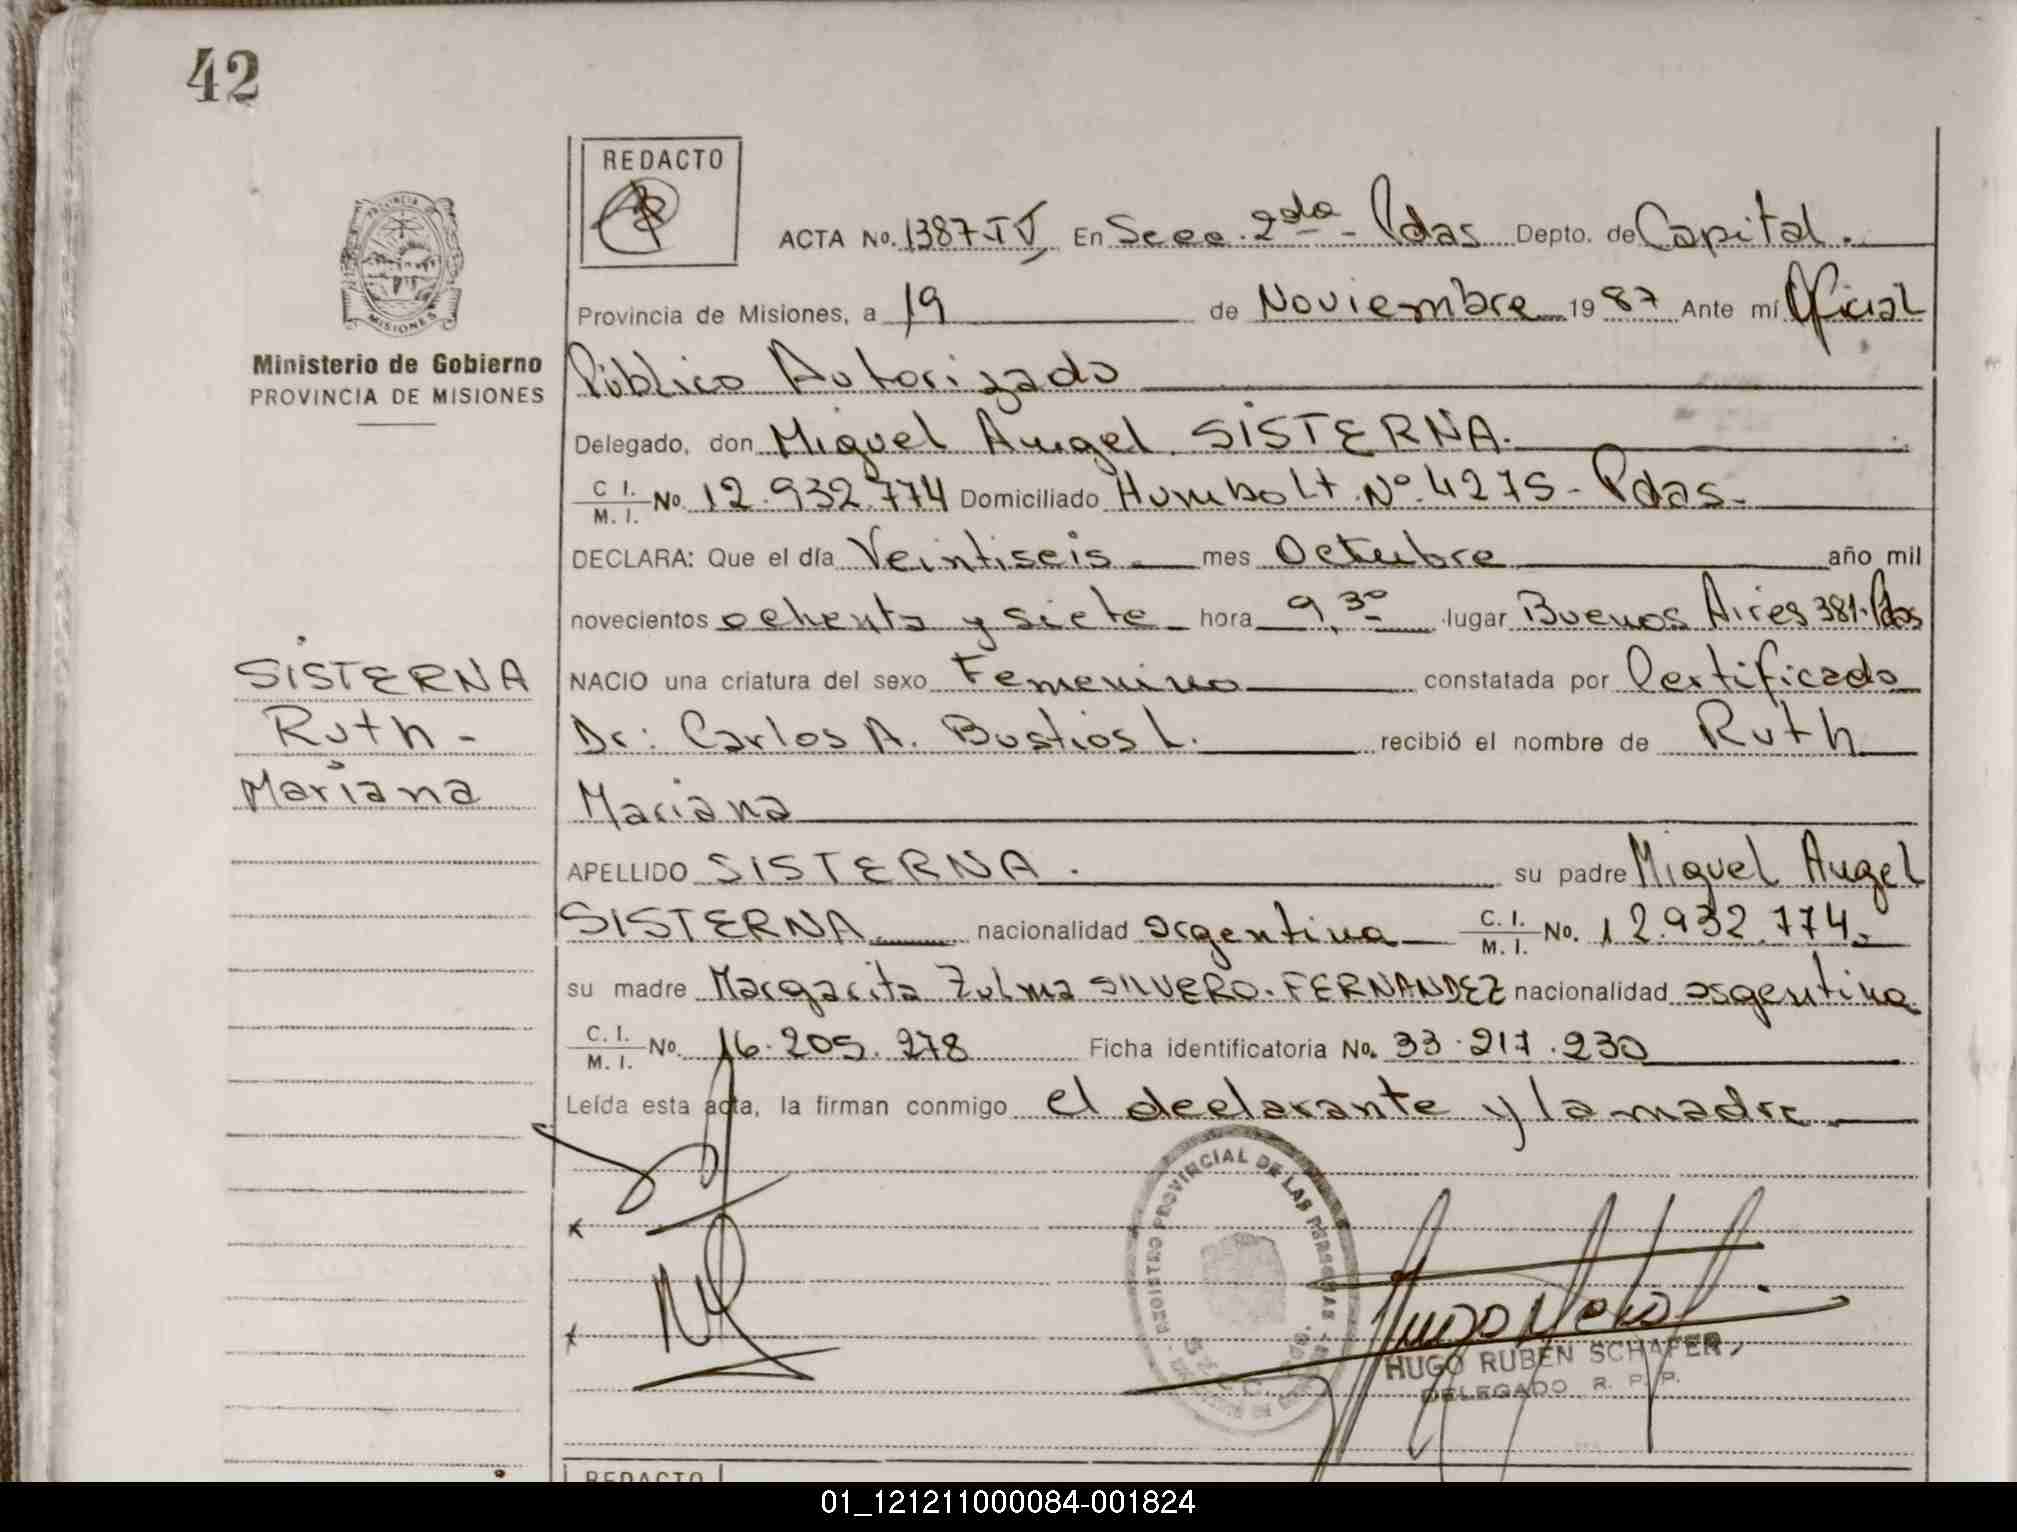 42
REDACTO
PROVINCIA
MISIONES
Ministerio de Gobierno
PROVINCIA DE MISIONES
ACTA No. 1387-IV En Secc. 2da - Pdas Depto. de Capital.
Provincia de Misiones, a 19 de Noviembre 1987 Ante mí Oficial
Público Autorizado
Delegado, don Miguel Angel SISTERNA.
C I. M. I. No. 12.932.774 Domiciliado Humbolt Nº 4275 - Pdas-
DECLARA: Que el día Veintiseis mes Octubre año mil
novecientos ochenta y siete hora 9,30 lugar Buenos Aires 381-Pdas
NACIO una criatura del sexo Femenino constatada por Certificado
Dr: Carlos A. Bustios L. recibió el nombre de Ruth
Mariana
SISTERNA
Ruth -
Mariana
APELLIDO SISTERNA. su padre Miguel Angel
SISTERNA nacionalidad argentina C. I. M. I. No. 12.932.774-
su madre Margarita Zulma SILVERO-FERNANDEZ nacionalidad argentina
C. I. M. I. No. 16.205.278 Ficha identificatoria No. 33.217.230
Leída esta acta, la firman conmigo el declarante y la madre
REGISTRO PROVINCIAL DE LAS PERSONAS
HUGO RUBEN SCHAFER
DELEGADO R. P. P.
REDACTO
01_121211000084-001824